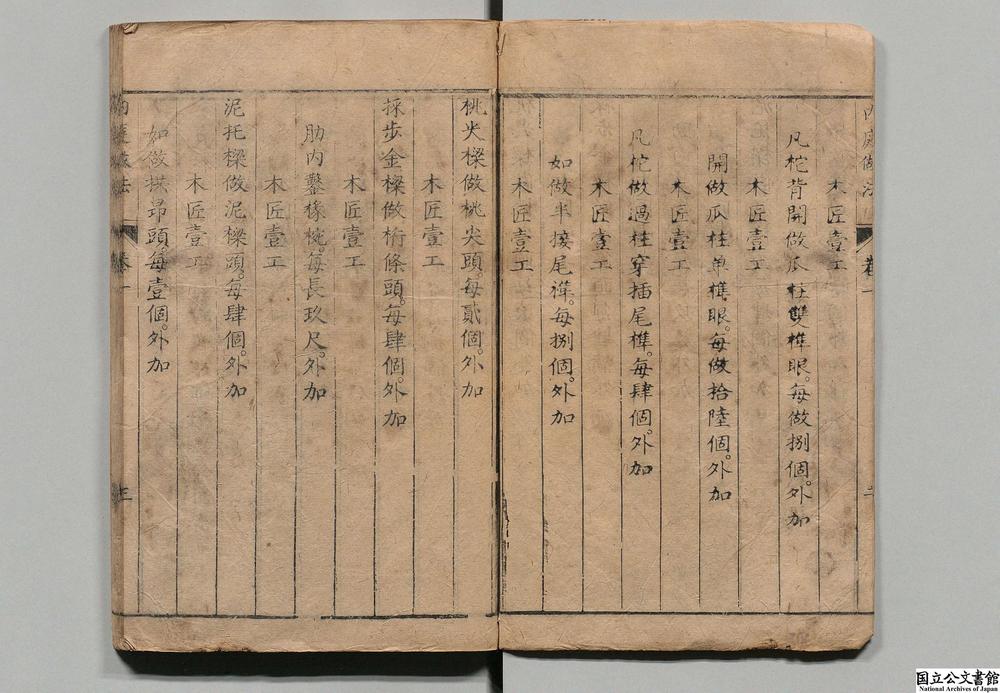 內庭做法
卷一
二
木匠壹工
凡柁背開做瓜柱雙榫眼。每做捌個。外加
木匠壹工
開做瓜柱单榫眼。每做拾陸個。外加
木匠壹工
凡柁做過柱穿插尾榫。每肆個。外加
木匠壹工
如做半接尾榫。每捌個。外加
木匠壹工
桃尖樑做桃尖頭。每貳個。外加
木匠壹工
採步金樑做桁條頭。每肆個。外加
木匠壹工
肋內鑿椽椀。每長玖尺。外加
木匠壹工
泥托樑做泥樑頭。每肆個。外加
木匠壹工
如做拱昂頭。每壹個。外加
內庭做法
卷一
三
国立公文書館
National Archives of Japan